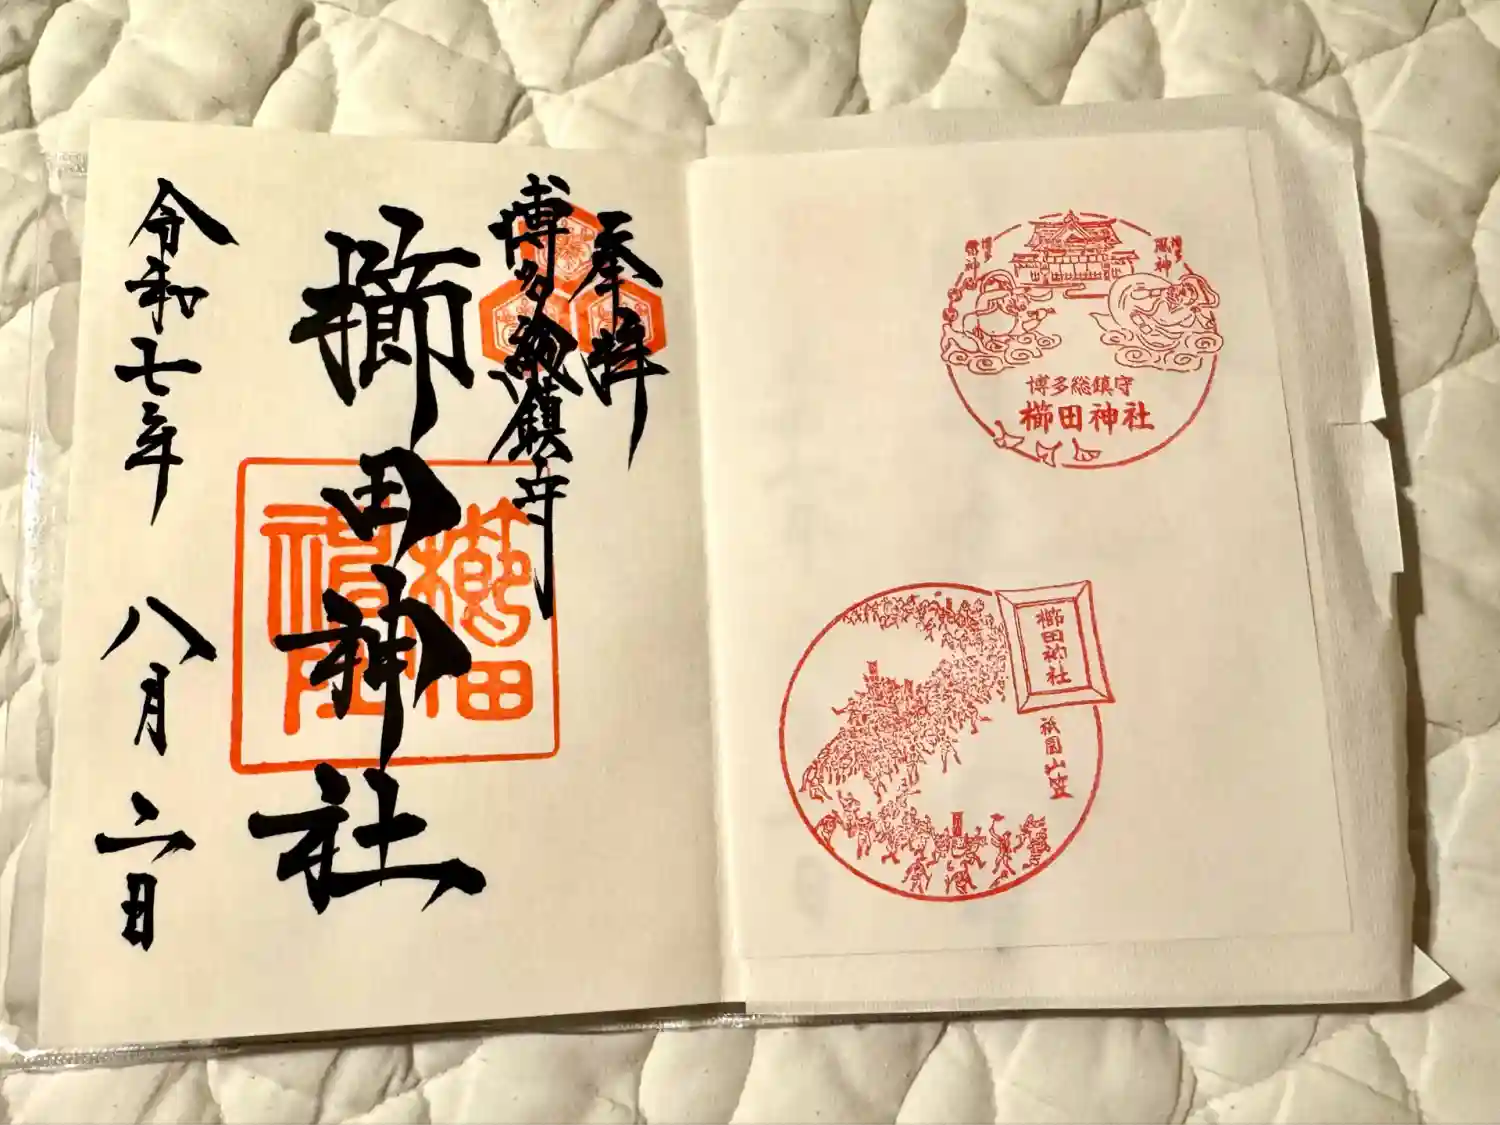 奉拝
博多総鎮守
櫛田神社
令和七年 八月 二日
櫛田
神社
博多
風神
博多
雷神
博多総鎮守
櫛田神社
櫛田神社
祇園山笠